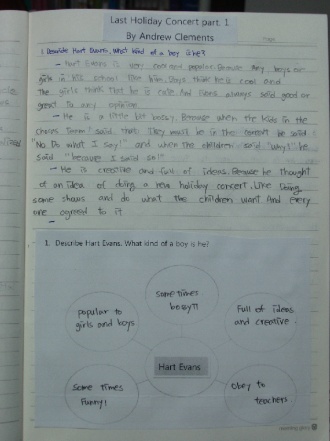 Last Holiday Concert part. 1
By Andrew Clements
1. Describe Hart Evans. What kind of a boy is he?
- Hart Evans is very cool and popular. Because they boys or
girls in his school like him. Boys think he is cool and
the girls think that he is cute And always said good or
great to any opinion.
- He is a little bit bossy. Because when the kids in the
chorus said that They must be in the concert he said
"No Do what I say!" and when the children said "why?" he
said "because I said so!"
- He is creative and full of ideas. Because he thought
of an idea of doing a new holiday concert. Like doing
some shows and do what the children want And every
one agreed to it
1. Describe Hart Evans. What kind of a boy is he?
Some times
bossy!!
popular to
girls and boys
Full of ideas
and creative
Hart Evans
Some times
Funny!
Obey to
teachers